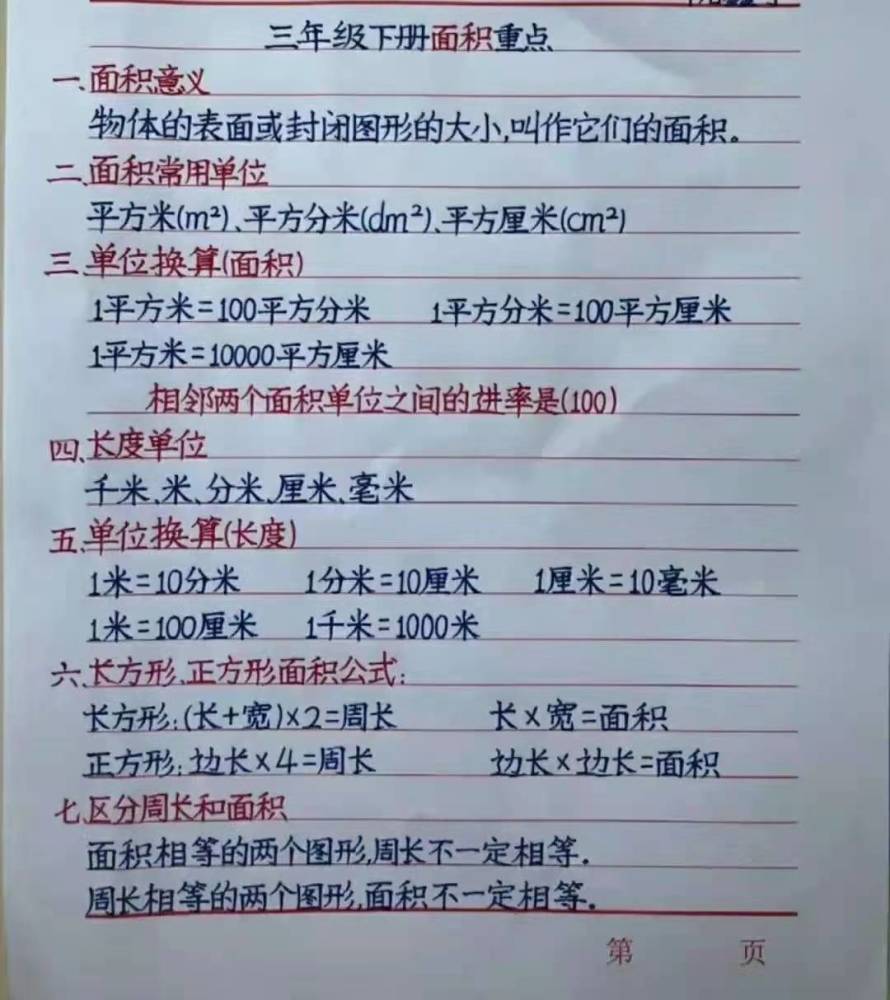 三年级下册面积重点
一、面积意义
物体的表面或封闭图形的大小,叫作它们的面积。
二、面积常用单位
平方米(m²)、平方分米(dm²)、平方厘米(cm²)
三、单位换算(面积)
1平方米=100平方分米 1平方分米=100平方厘米
1平方米=10000平方厘米
相邻两个面积单位之间的进率是(100)
四、长度单位
千米、米、分米、厘米、毫米
五、单位换算(长度)
1米=10分米 1分米=10厘米 1厘米=10毫米
1米=100厘米 1千米=1000米
六、长方形、正方形面积公式:
长方形:(长+宽)×2=周长 长×宽=面积
正方形:边长×4=周长 边长×边长=面积
七、区分周长和面积
面积相等的两个图形,周长不一定相等.
周长相等的两个图形,面积不一定相等.
第 页